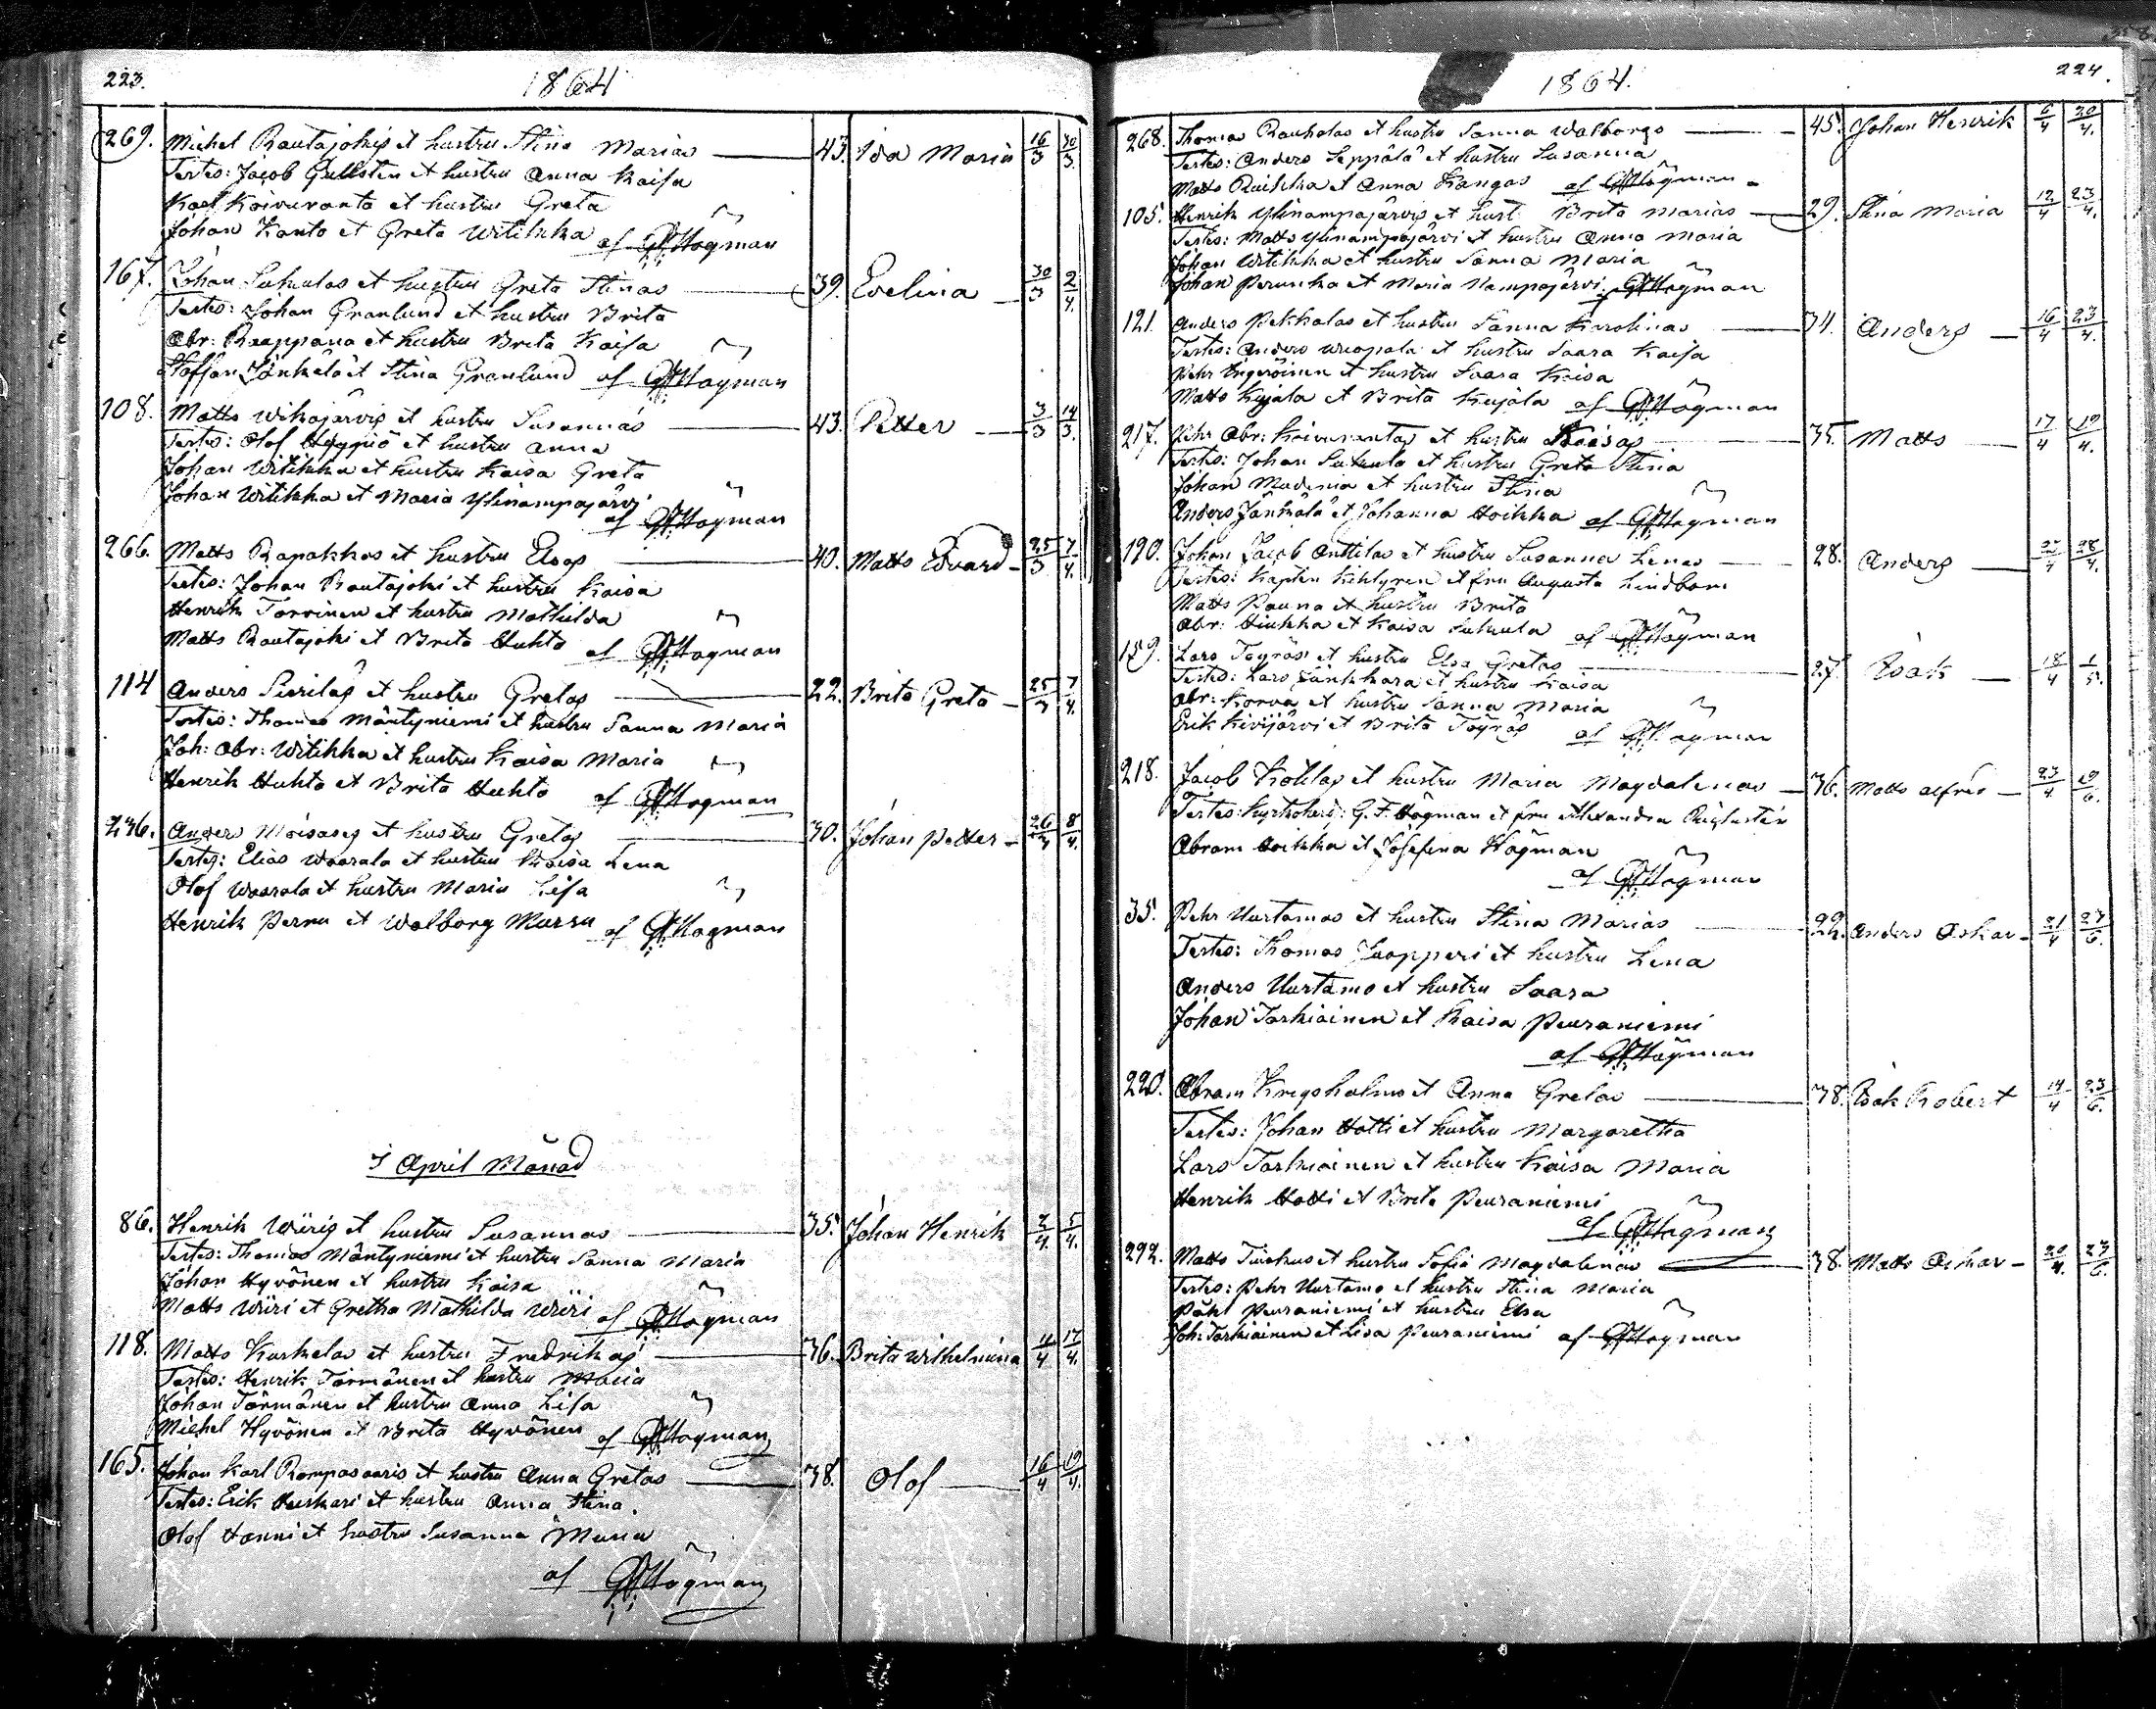 223.
1864
269. Michel Rautajokis et hustru Stina Marias 43. Ida Maria 16/3 30/3.
Testes: Jacob Gullsten et hustru Anna Kaisa
Karl Koivuranta et hustru Greta
Johan Kanto et Greta Witikka af GFHögman
167. Johan Sukulas et hustru Greta Stinas 39. Evelina 30/3 2/4.
Testes: Johan Granlund et hustru Brita
Abr: Raappana et hustru Brita Kaisa
Staffan Jänkälä et Stina Granlund af GFHögman
108. Matts Wikajärvis et hustru Susannas 43. Petter 3/3 14/3.
Testes: Olof Hyypiö et hustru Anna
Johan Witikka et hustru Kaisa Greta
Johan Witikka et Maria Ylinampajärvi
af GFHögman
266. Matts Rapakkos et hustru Elsas 40. Matts Edvard 25/3 7/4.
Testes: Johan Rautajoki et hustru Kaisa
Henrik Torvinen et hustru Mathilda
Matts Rautajoki et Brita Huhta af GFHögman
114 Anders Sierilas et hustru Gretas 22. Brita Greta 25/3 7/4.
Testes: Thomas Mäntyniemi et hustru Sanna Maria
Joh: Abr: Witikka et hustru Kaisa Maria
Henrik Huhta et Brita Huhta af GFHögman
236. Anders Moisases et hustru Gretas 30. Johan Petter 26/3 8/4.
Testes: Elias Waarala et hustru Kaisa Lena
Olof Waarala et hustru Maria Lisa
Henrik Pernu et Walborg Mursu af GFHögman
I April Månad
86. Henrik Wiiris et hustru Susannas 35. Johan Henrik 2/4 5/4.
Testes: Thomas Mäntyniemi et hustru Sanna Maria
Johan Hyvönen et hustru Kaisa
Matts Wiiri et Gretha Mathilda Wiiri af GFHögman
118. Matts Karhelas et hustru Fredrikas 36. Brita Wilhelmina 11/4 17/4.
Testes: Henrik Törmänen et hustru Maria
Johan Törmänen et hustru Anna Lisa
Michel Hyvönen et Brita Hyvönen af GFHögman
165. Johan Karl Rompasaaris et hustru Anna Gretas 38. Olof 16/4 19/4.
Testes: Erik Keskari et hustru Anna Stina.
Olof Hanni et hustru Susanna Maria
af GFHögman
1864.
224.
268. Thomas Raukalas et hustru Sanna Walborgs 45. Johan Henrik 6/4 20/4.
Testes: Anders Seppälä et hustru Susanna
Matts Ruikka et Anna Kangas af GFHögman
105. Henrik Ylinampajärvis et hust: Brita Marias 29. Stina Maria 12/4 23/4.
Testes: Matts Ylinampajärvi et hustru Anna Maria
Johan Witikka et hustru Sanna Maria
Johan Perunka et Maria Nampajärvi. GFHögman
121. Anders Pekkalas et hustru Sanna Karolinas 34. Anders 16/4 23/4.
Testes: Anders Wuopala et hustru Saara Kaisa
Pehr Ingeröinen et hustru Saara Kaisa
Matts Kujala et Brita Kujala af GFHögman
217. Pehr Abr: Koivurantas et hustru Kaisas 35. Matts 17/4 19/4.
Testes: Johan Sukula et hustru Greta Stina
Johan Madenia et hustru Stina
Anders Jänkälä et Johanna Hoikka af GFHögman
190. Johan Jacob Anttilas et hustru Susanna Lenas 28. Anders 27/4 28/4.
Testes: Kapten Kihlgren et fru Augusta Lindbom
Matts Pauna et hustru Brita
Abr: Hiukka et Kaisa Sukula af GFHögman
159. Lars Töyräs et hustru Elsa Gretas 27. Isak 18/4 1/5.
Testes: Lars Jänkkara et hustru Kaisa
Abr: Korva et hustru Sanna Maria
Erik Kivijärvi et Brita Töyräs af GFHögman
218. Jacob Hottas et hustru Maria Magdalenas 36. Matts Alfred 23/4 19/6.
Testes: Kyrkoherd: G. F. Högman et fru Alexandra
Abram Hoikka et Josefina Högman
af GFHögman
35. Pehr Uurtamos et hustru Stina Marias 22. Anders Oskar 21/4 23/6.
Testes: Thomas Kaapperi et hustru Lena
Anders Uurtamo et hustru Saara
Johan Tarkiainen et Kaisa Peuraniemi
af GFHögman
220. Abram Krigsholms et Anna Gretas 38. Isak Robert 14/4 23/6.
Testes: Johan Hotti et hustru Margaretha
Lars Tarkiainen et hustru Kaisa Maria
Henrik Hotti et Brita Peuraniemi
af GFHögman
292. Matts Tuohus et hustru Sofia Magdalenas 38. Matts Oskar 20/4. 23/6.
Testes: Pehr Uurtamo et hustru Stina Maria
Påhl Peuraniemi et hustru Elsa
Joh: Tarkiainen et Lisa Peuraniemi af GFHögman